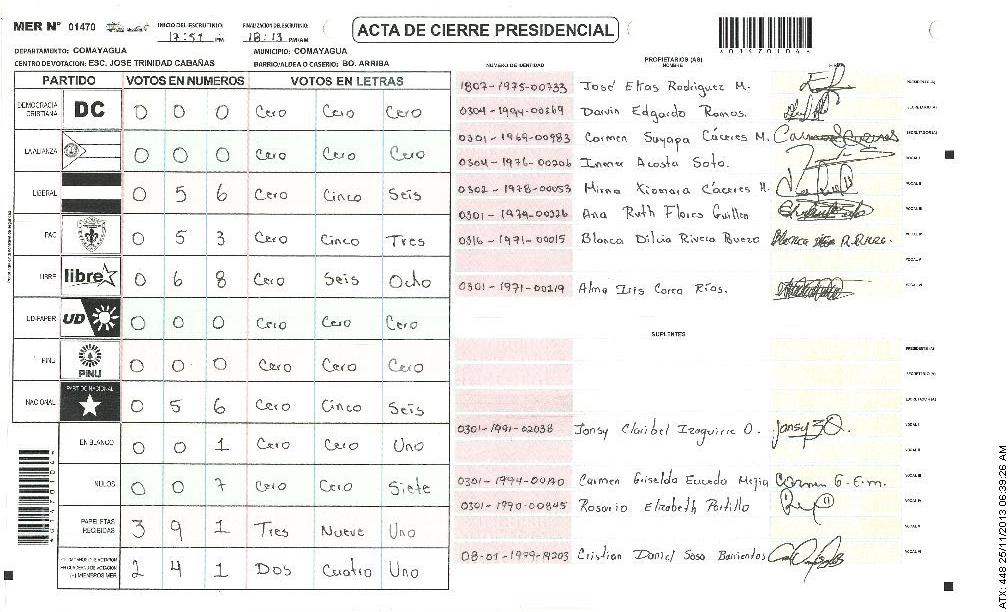 MER N° 01470
INICIO DEL ESCRUTINIO: 17:51 PM
FINALIZACION DEL ESCRUTINIO: 18:13 PM/AM
ACTA DE CIERRE PRESIDENCIAL
DEPARTAMENTO: COMAYAGUA
MUNICIPIO: COMAYAGUA
CENTRO DE VOTACION: ESC. JOSE TRINIDAD CABAÑAS
BARRIO/ALDEA O CASERIO: BO. ARRIBA
PARTIDO VOTOS EN NUMEROS VOTOS EN LETRAS
DEMOCRACIA CRISTIANA DC 0 0 0 Cero Cero Cero
LA ALIANZA 0 0 0 Cero Cero Cero
LIBERAL 0 5 6 Cero Cinco Seis
PAC 0 5 3 Cero Cinco Tres
LIBRE libre 0 6 8 Cero Seis Ocho
UD-FAPER UD 0 0 0 Cero Cero Cero
PINU PINU 0 0 0 Cero Cero Cero
NACIONAL PARTIDO NACIONAL 0 5 6 Cero Cinco Seis
EN BLANCO 0 0 1 Cero Cero Uno
NULOS 0 0 7 Cero Cero Siete
PAPELETAS RECIBIDAS 3 9 1 Tres Nueve Uno
(+) MIEMBROS MER 2 4 1 Dos Cuatro Uno
PROPIETARIOS (AS)
NUMERO DE IDENTIDAD NOMBRE FIRMA
1807-1975-00733 José Elias Rodriguez M. PRESIDENTE(A)
0304-1994-00369 Darvin Edgardo Ramos. SECRETARIO(A)
0301-1969-00983 Carmen Suyapa Cáceres M. ESCRUTADOR(A)
0304-1976-00206 Acosta Soto. VOCAL I
0302-1978-00053 Mirna Xiomara Cáceres M. VOCAL II
0301-1979-00326 Ana Ruth Flores Guillen VOCAL III
0316-1971-00015 Blanca Dilcia Rivera Buezo VOCAL IV
VOCAL V
0301-1971-00219 Alma Iris Corea Ríos. VOCAL VI
SUPLENTES
PRESIDENTE (A)
SECRETARIO (A)
ESCRUTADOR (A)
0301-1991-02038 Jonsy Claribel Izaguirre O. VOCAL I
0301-1994- Carmen Griselda Eucedo Mejia Carmen G. E. m. VOCAL III
0301-1990-00845 Rosario Elizabeth Portillo VOCAL IV
VOCAL V
08-01-1999-19203 Cristian Daniel Sosa Barrientos VOCAL VI
ATX: 448 25/11/2013 06:39:26 AM